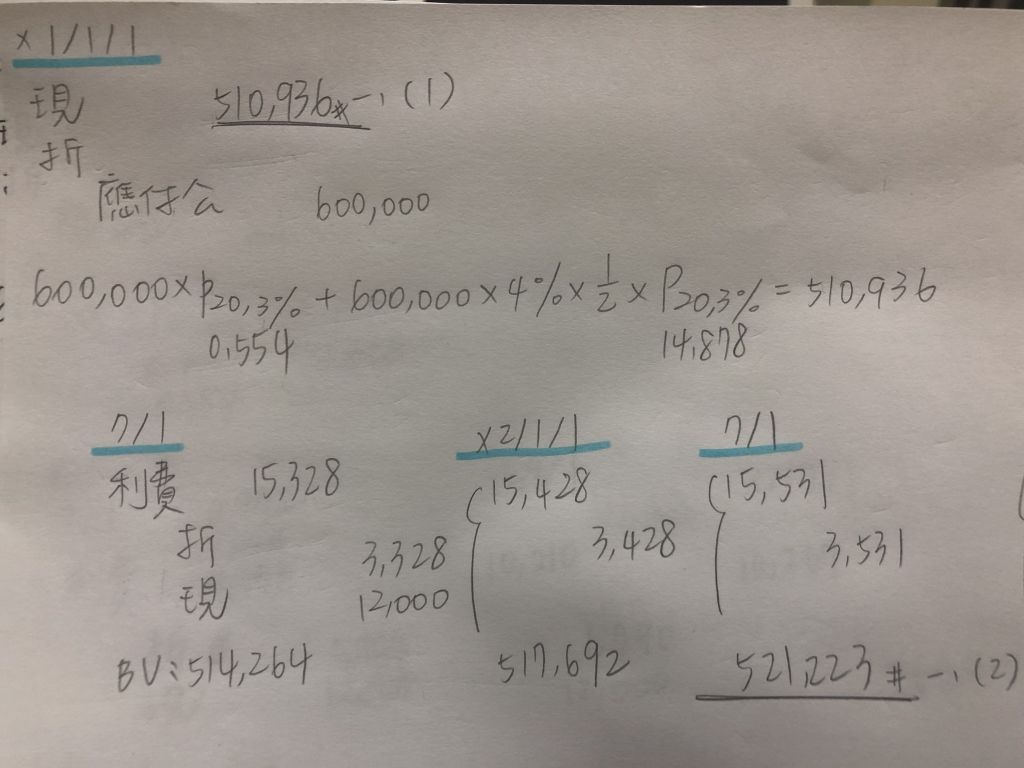 x1/1/1
現 510,936# 一、(1)
折
應付公 600,000
600,000 × p20,3% + 600,000 × 4% × 1/2 × P20,3% = 510,936
0.554 14.878
7/1 x2/1/1 7/1
利費 15,328 15,428 15,531
折 3,328 3,428 3,531
現 12,000
BV: 514,264 517,692 521,223# 一、(2)